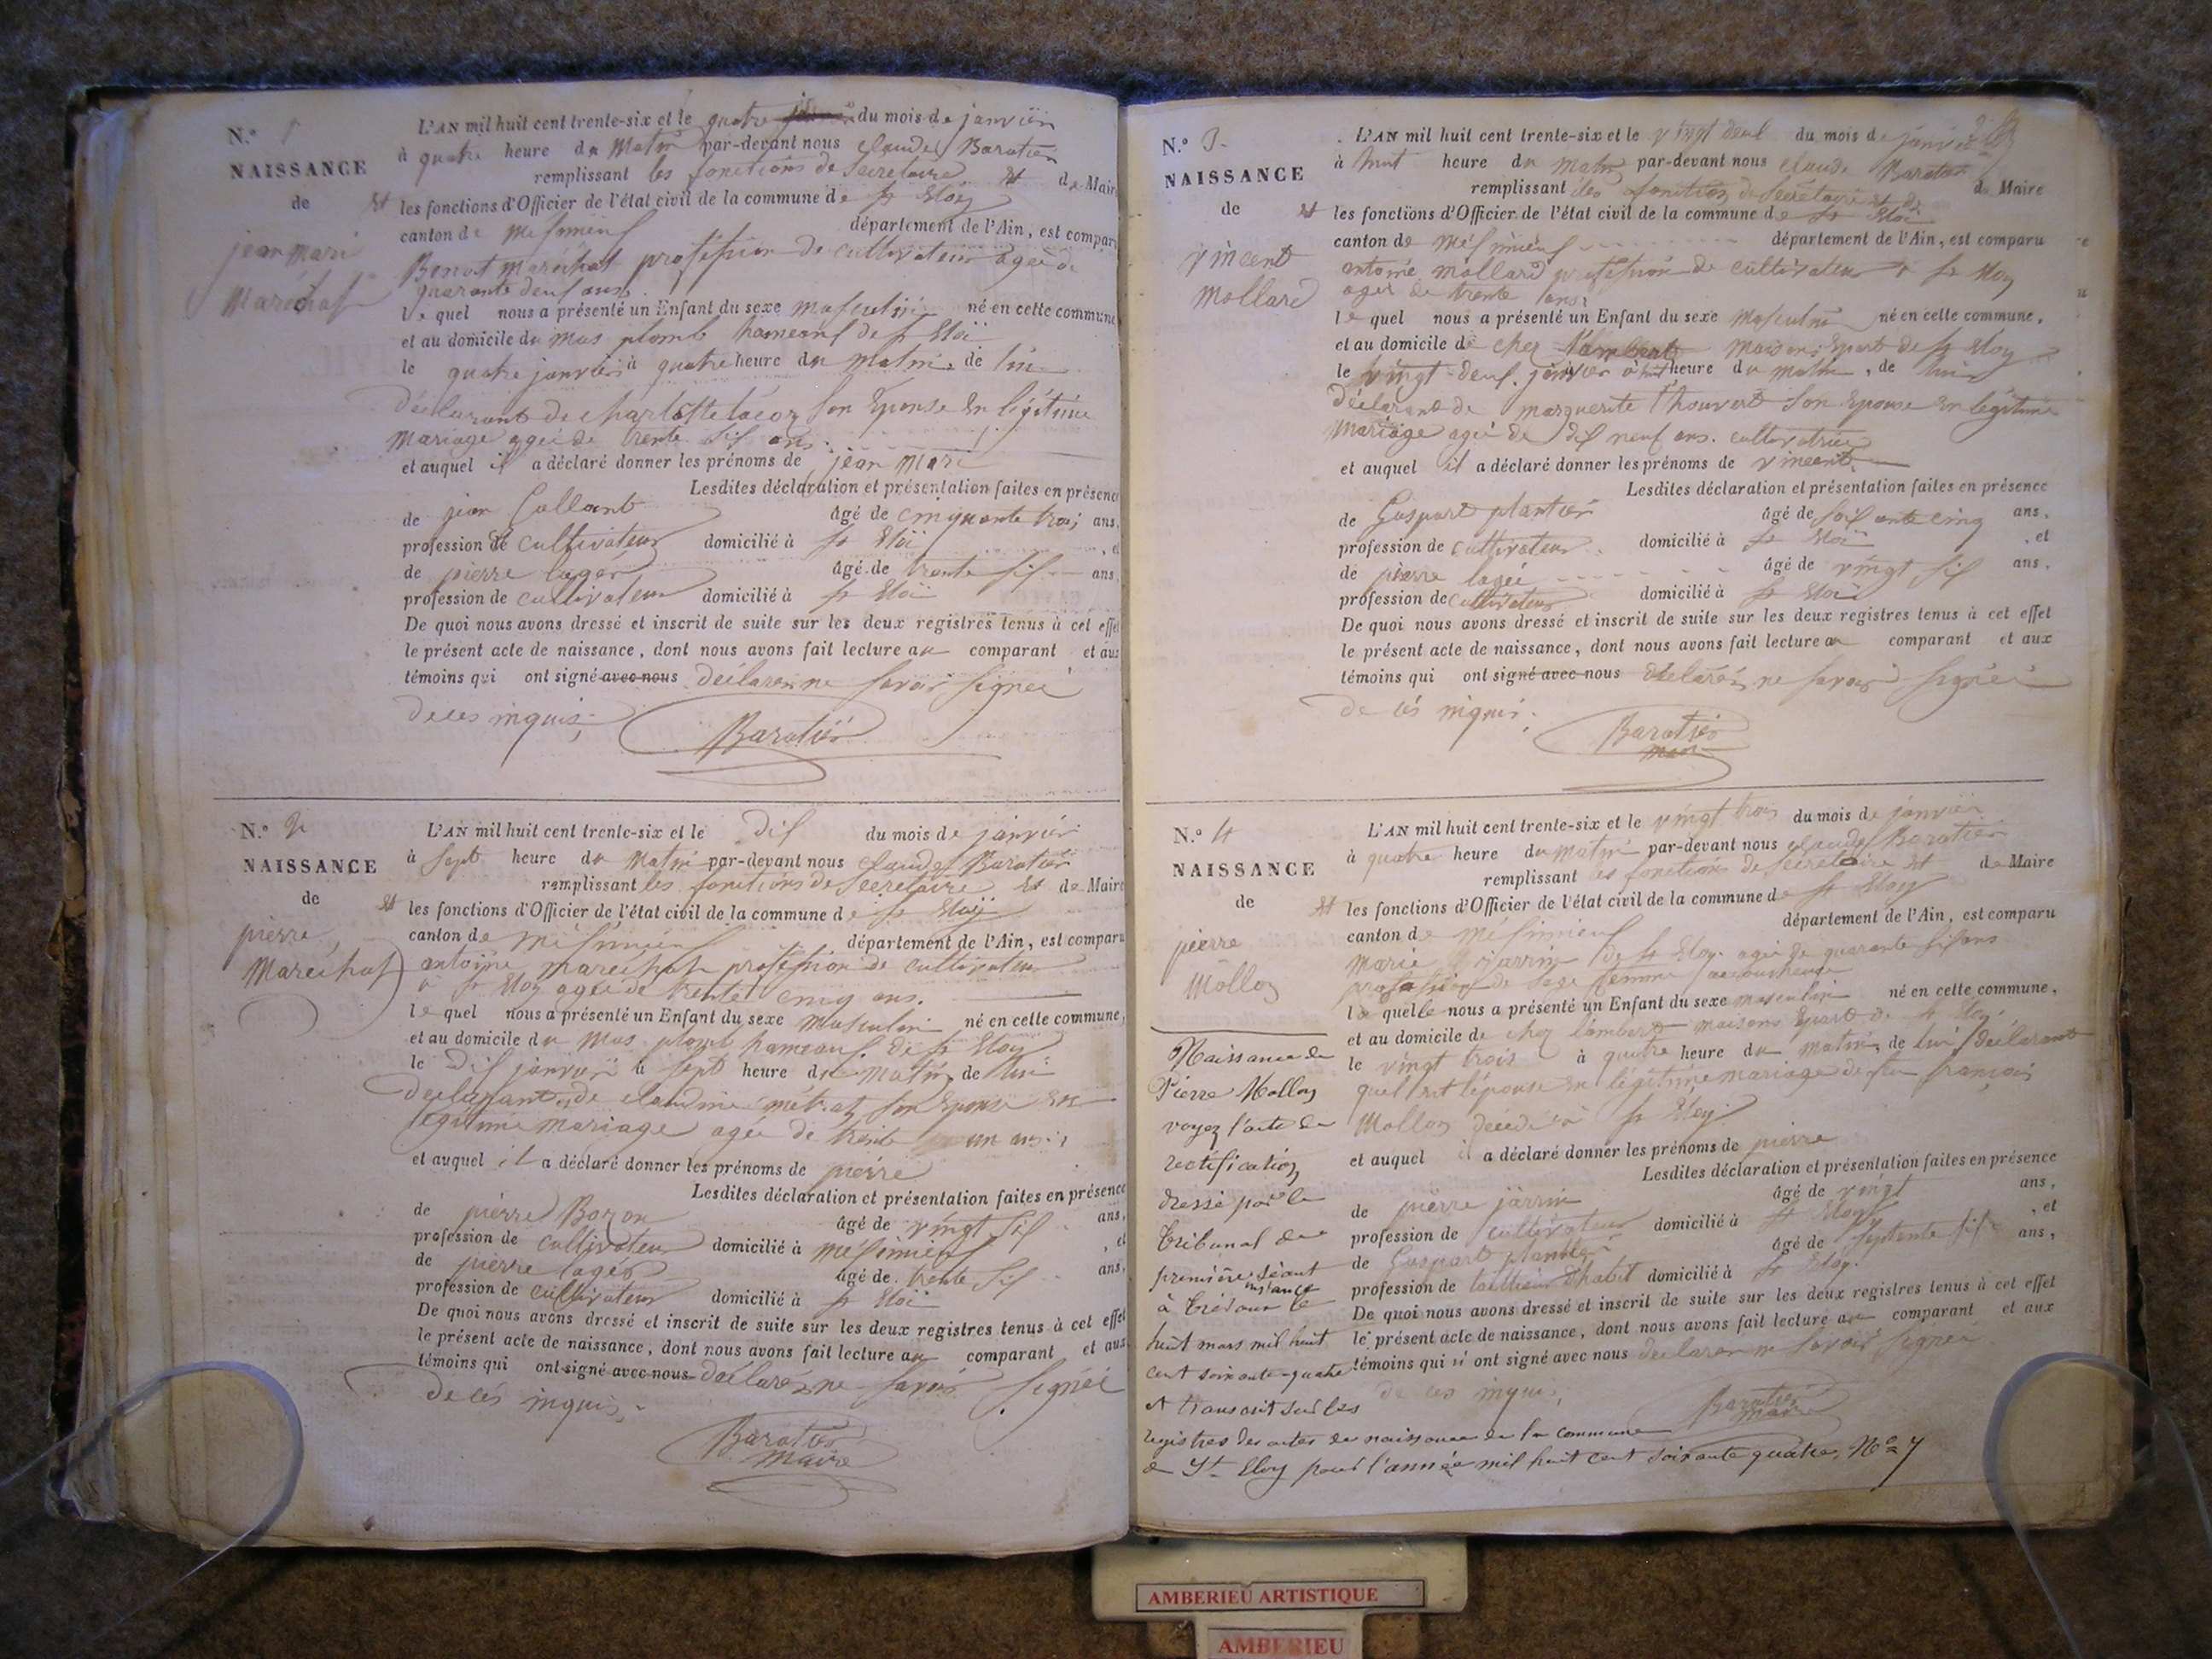 N.o 1
NAISSANCE
de
jean Mari
Maréchal
L'AN mil huit cent trente-six et le quatre du mois de janvier
à quatre heure du Matin par-devant nous claude Baratier
remplissant les fonctions de Secretaire et de Maire
et les fonctions d'Officier de l'état civil de la commune de st Eloy
canton de Mesimieux département de l'Ain, est comparu
Benoit Maréchal profession de cultivateur agée de
quarante deux ans.
lequel nous a présenté un Enfant du sexe masculin né en cette commune
et au domicile du mas plomb hameaux de st Eloi
le quatre janvier à quatre heure du matin, de lui
déclarant de charlotte lacoz son Epouse En légitime
Mariage agée de trente six ans.
et auquel il a déclaré donner les prénoms de jean Mari
Lesdites déclaration et présentation faites en présence
de jean Calland âgé de cinquante trois ans,
profession de cultivateur domicilié à st Eloi, et
de pierre lager âgé de trente six ans
profession de cultivateur domicilié à st Eloi
De quoi nous avons dressé et inscrit de suite sur les deux registres tenus à cet effet
le présent acte de naissance, dont nous avons fait lecture au comparant et aux
témoins qui ont signé avec nous déclaren ne savoir signée
de ces inquis;
Baratier
N.o 2
NAISSANCE
de
pierre
Maréchal
L'AN mil huit cent trente-six et le dix du mois de janvier
à sept heure du Matin par-devant nous claude Baratier
remplissant les fonctions de Secretaire et de Maire
et les fonctions d'Officier de l'état civil de la commune de st Eloy
canton de Mésimieux département de l'Ain, est comparu
antoine maréchal profession de cultivateur
à st Eloy agée de trente cinq ans.
lequel nous a présenté un Enfant du sexe masculin né en cette commune,
et au domicile du Mas plomb hameaux de st Eloy
le dix janvier à sept heure du matin, de lui
déclarant de claudine métraz son Epouse en
légitime mariage agée de trente un ans.
et auquel il a déclaré donner les prénoms de pierre
Lesdites déclaration et présentation faites en présence
de pierre Bozon âgé de vingt six ans,
profession de cultivateur domicilié à Mésimieux, et
de pierre lager âgé de trente six ans,
profession de cultivateur domicilié à st Eloi
De quoi nous avons dressé et inscrit de suite sur les deux registres tenus à cet effet
le présent acte de naissance, dont nous avons fait lecture au comparant et aux
témoins qui ont signé avec nous déclaren ne savoir signée
de ces inquis.
Baratier
Maire
N.o 3
NAISSANCE
de
vincent
Mollard
L'AN mil huit cent trente-six et le vingt deux du mois de janvier
à huit heure du matin par-devant nous claude Baratier
remplissant les fonctions de Secretaire et de Maire
et les fonctions d'Officier de l'état civil de la commune de st Eloi
canton de Mésimieux département de l'Ain, est comparu
antoine Mollard profession de cultivateur à st Eloy
agée de trente ans.
lequel nous a présenté un Enfant du sexe Masculin né en cette commune,
et au domicile de chez lambert maisons Epart de st Eloy
le vingt-deux janvier à huit heure du matin, de lui
déclarant de marguerite Thouvert son Epouse en légitime
mariage agée de dix neuf ans. cultivatrice
et auquel il a déclaré donner les prénoms de vincent
Lesdites déclaration et présentation faites en présence
de Gaspart plantier âgé de soixante cinq ans,
profession de cultivateur domicilié à st Eloi, et
de pierre lagée âgé de vingt six ans,
profession de cultivateur domicilié à st Eloi
De quoi nous avons dressé et inscrit de suite sur les deux registres tenus à cet effet
le présent acte de naissance, dont nous avons fait lecture au comparant et aux
témoins qui ont signé avec nous déclaren ne savoir signée
de cés inquis.
Baratier
maire
N.o 4
NAISSANCE
de
pierre
Molloz
L'AN mil huit cent trente-six et le vingt trois du mois de janvier
à quatre heure du matin par-devant nous claude Baratier
remplissant les fonctions de Secretaire et de Maire
et les fonctions d'Officier de l'état civil de la commune de st Eloy
canton de Mésimieux département de l'Ain, est comparu
marie jarrin de st Eloy agée de quarante six ans
profession de sage femme accoucheuse
laquelle nous a présenté un Enfant du sexe masculin né en cette commune,
et au domicile de chez lambert maisons Epart de st Eloy
le vingt trois à quatre heure du matin, de lui déclarant
quel est lépouse en légitime mariage de feu françois
Molloz décédé à st Eloy
et auquel il a déclaré donner les prénoms de pierre
Lesdites déclaration et présentation faites en présence
de pierre jarrin âgé de vingt ans,
profession de cultivateur domicilié à st Eloy, et
de Gaspart plantier âgé de septente six ans,
profession de tailleur d'habit domicilié à st Eloy.
De quoi nous avons dressé et inscrit de suite sur les deux registres tenus à cet effet
le présent acte de naissance, dont nous avons fait lecture au comparant et aux
témoins qui n'ont signé avec nous declaren ne savoir signée
de ces inquis,
Baratier
maire
Naissance de
Pierre Molloz
voyez l'acte de
rectification
dressé par le
Tribunal de
première instance séant
à Trévoux le
huit mars mil huit
cent soixante-quatre
et transcrit sur les
registres des actes de naissance de la commune
de St Eloy pour l'année mil huit cent soixante quatre, No 7
AMBERIEU ARTISTIQUE
AMBERIEU